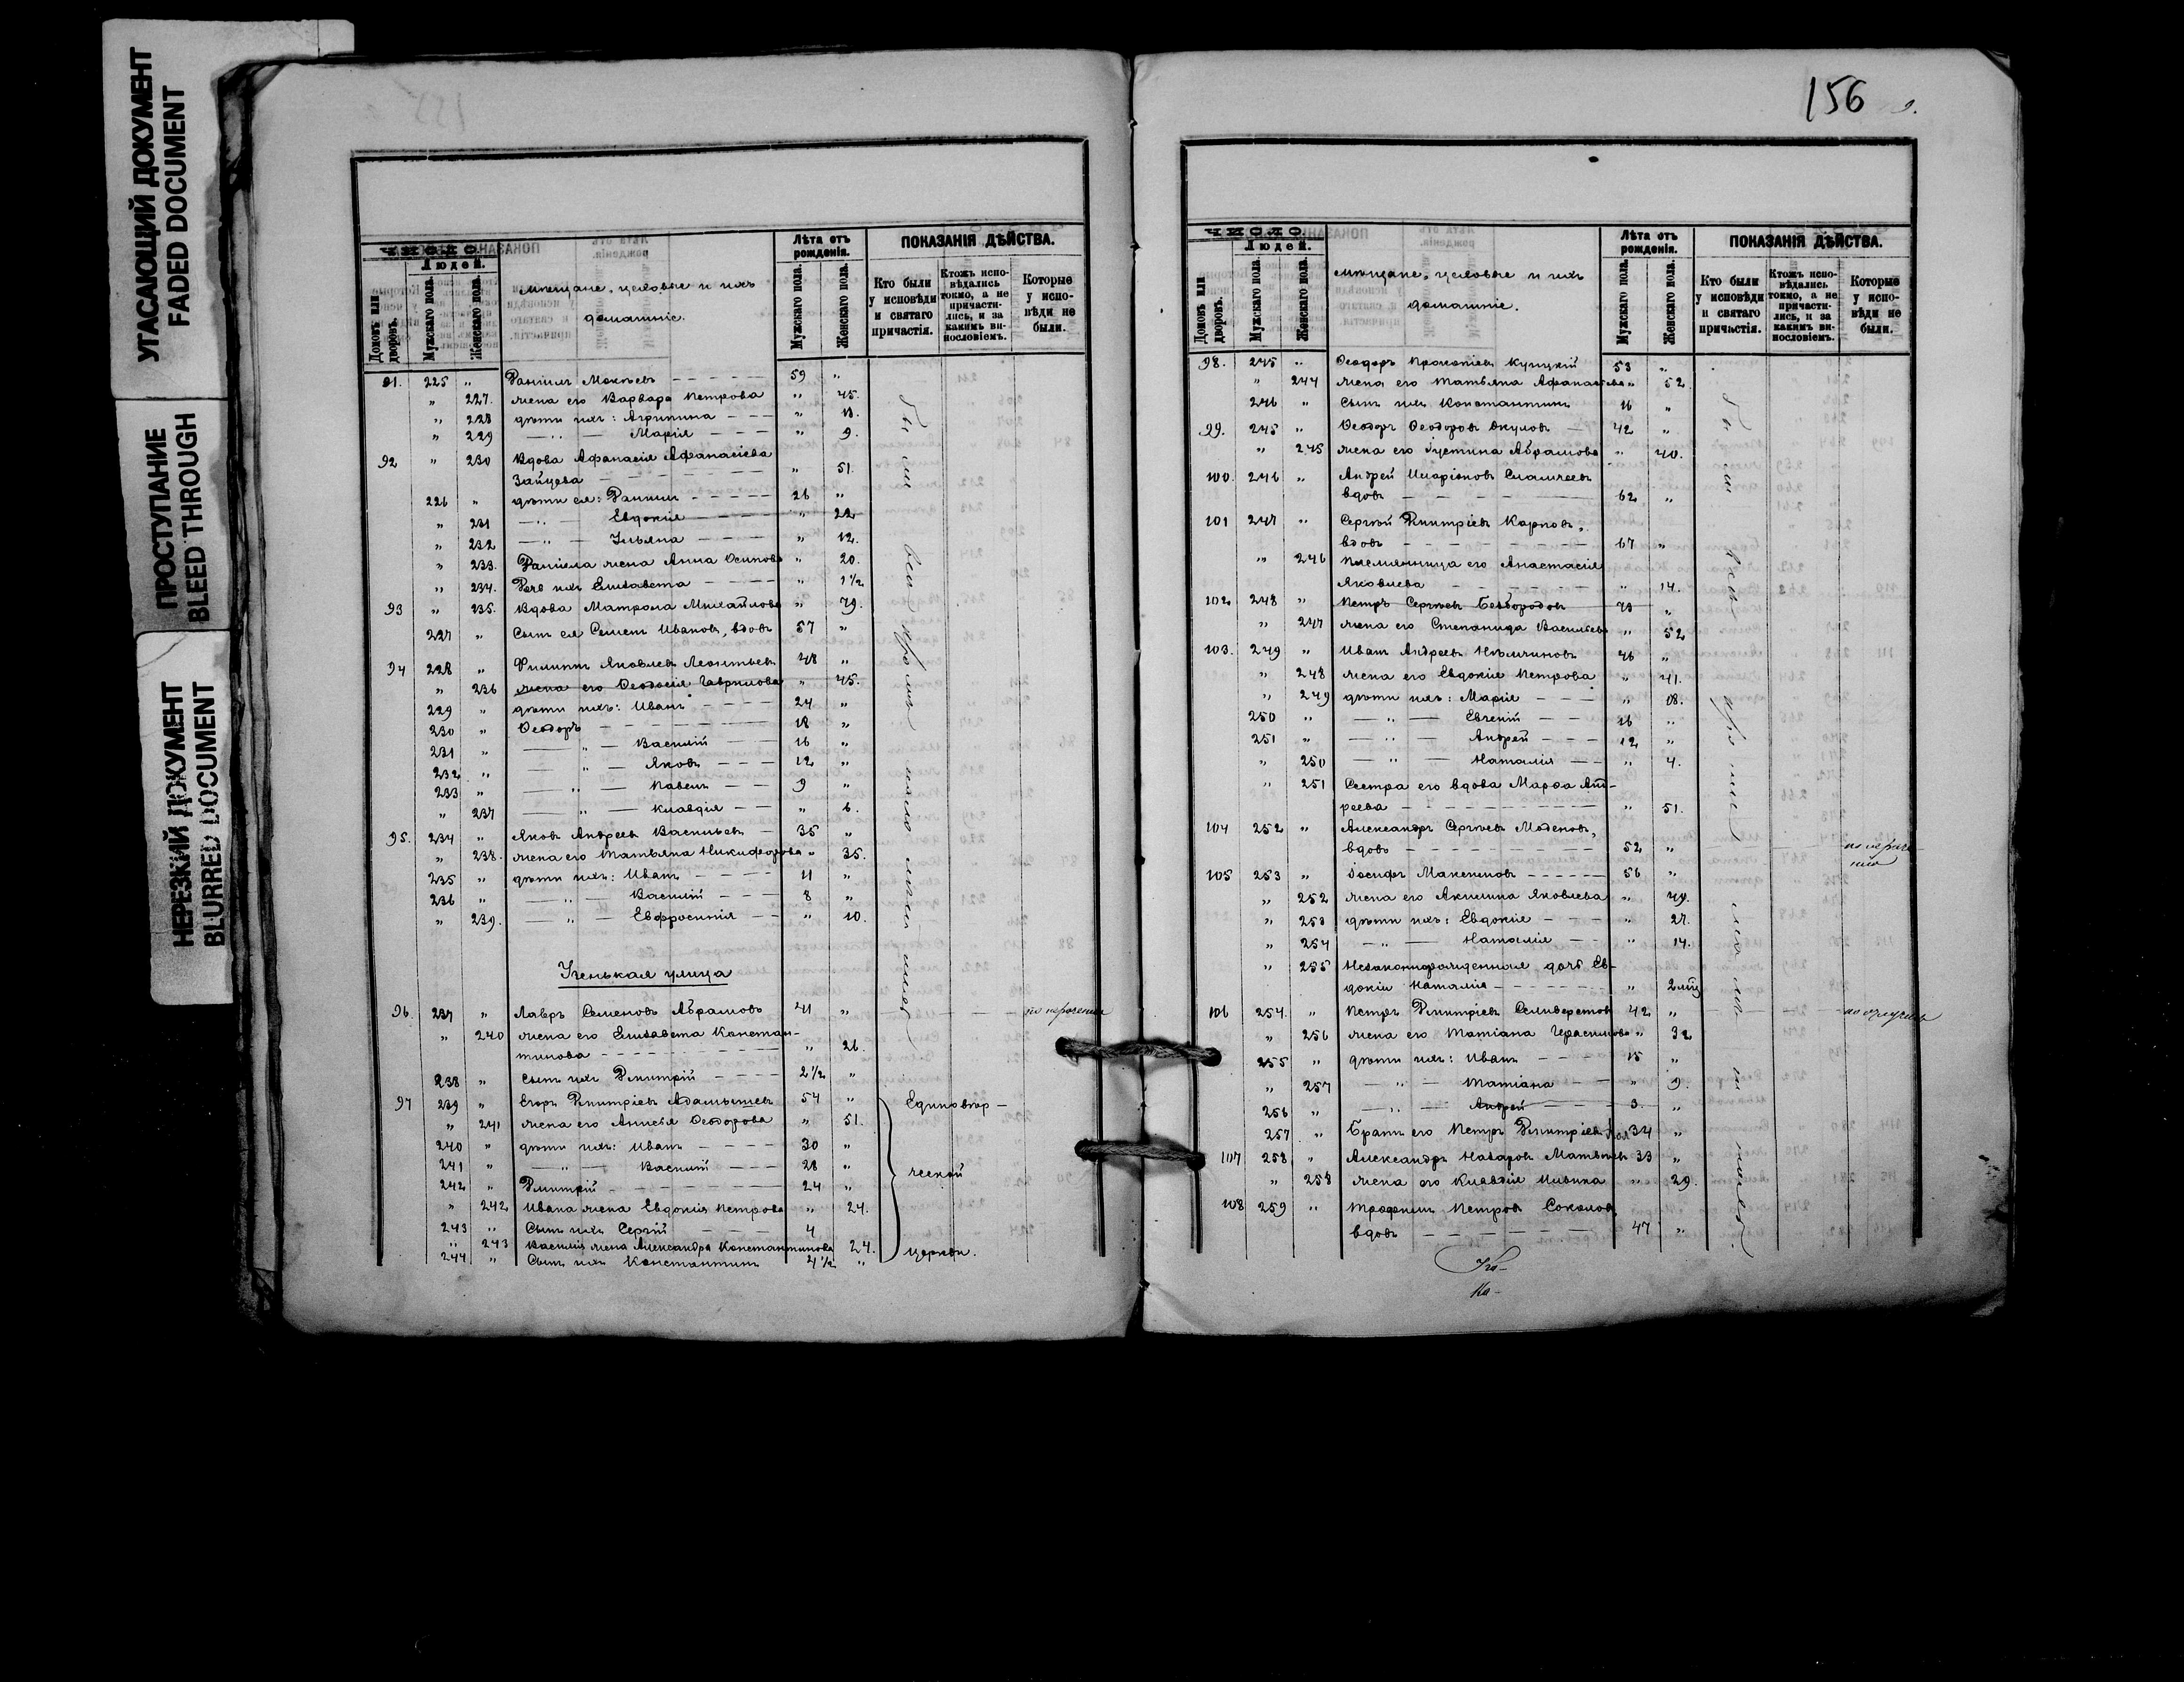 УГАСАЮЩИЙ ДОКУМЕНТ
FADED DOCUMENT
ПРОСТУПАНИЕ
BLEED THROUGH
НЕРЕЗКИЙ ДОКУМЕНТ
BLURRED DOCUMENT
ЧИСЛО.
Людей.
Домовъ или дворовъ.
Мужскаго пола.
Женскаго пола.
мѣщане, цеховые и ихъ
домашніе.
Лѣта отъ рожденія.
Мужскаго пола.
Женскаго пола.
ПОКАЗАНІЯ ДѢЙСТВА.
Кто были у исповѣди и святаго причастія.
Ктожъ исповѣдались токмо, а не причастились, и за какимъ винословіемъ.
Которые у исповѣди не были.
91. 225 „ Даніилъ Мокѣевъ 59 „
„ 227. жена его Варвара Петрова „ 45.
„ 228 дѣти ихъ: Агрипина „ 13.
„ 229 — „ — Марія „ 9.
92 „ 230 Вдова Афанасія Афанасіева
Зайцева „ 51.
226 „ дѣти ея: Даніилъ 26 „
„ 231 — „ — Евдокія „ 22
„ 232 — „ — Ульяна „ 12.
„ 233. Даніила жена Анна Осипова „ 20.
„ 234. Дочь ихъ Елисавета „ 1 1/2
93 „ 235. Вдова Матрона Михайлова „ 79.
227 „ Сынъ ея Семенъ Ивановъ, вдовъ 57 „
94 228 „ Филиппъ Яковлевъ Леонтьевъ 48 „
„ 236 жена его Ѳеодосія Гаврилова „ 45.
229 „ дѣти ихъ: Иванъ 24 „
230 „ Ѳеодоръ 18 „
231 „ — „ — Василій 16 „
232 „ — „ — Яковъ 12 „
233 „ — „ — Павелъ 9 „
„ 237 — „ — Клавдія „ 6.
95. 234 „ Яковъ Андреевъ Васильевъ 35 „
„ 238. жена его Татьяна Никифорова „ 35.
235 „ дѣти ихъ: Иванъ 11 „
236 „ — „ — Василій 8 „
„ 239. — „ — Евфросинія „ 10.
улица
96. 237 „ Лавръ Семеновъ Абрамовъ 41 „ по нерѣченію
„ 240 жена его Елисавета Констан-
тинова „ 26.
238 „ Сынъ ихъ Димитрій 2 1/2 „
97 239 „ Егоръ Димитріевъ Адамышевъ 54 „ Единовѣр-
„ 241 жена его Анисья Ѳеодорова „ 51.
240 „ дѣти ихъ: Иванъ 30 „
241 „ — „ — Василій 28 „ ческой
242 „ Димитрій 24 „
„ 242 Ивана жена Евдокія Петрова „ 24.
243 „ Сынъ ихъ Сергій 4
„ 243 Василія жена Александра Константинова 24. церкви.
244 „ Сынъ ихъ Константинъ 4 1/2 „
156
ЧИСЛО.
Людей.
Домовъ или дворовъ.
Мужскаго пола.
Женскаго пола.
мѣщане, цеховые и ихъ
домашніе.
Лѣта отъ рожденія.
Мужскаго пола.
Женскаго пола.
ПОКАЗАНІЯ ДѢЙСТВА.
Кто были у исповѣди и святаго причастія.
Ктожъ исповѣдались токмо, а не причастились, и за какимъ винословіемъ.
Которые у исповѣди не были.
98. 245 „ Ѳеодоръ Прокопіевъ Купцкій 53 „
„ 244 жена его Татьяна Афанасьева „ 52
246 „ Сынъ ихъ Константинъ 16 „
99. 245 „ Ѳеодоръ Ѳеодоровъ Окуловъ 42 „
„ 245 жена его Іустина Абрамова „ 40.
100. 246 „ Андрей Иларіоновъ
вдовъ 62 „
101 247 „ Сергѣй Димитріевъ Карповъ,
вдовъ 67 „
„ 246 племянница его Анастасія
Яковлева „ 14.
102 248 „ Петръ Сергѣевъ Безбородовъ 79 „
„ 247 жена его Степанида Васильева „ 52
103. 249 „ Иванъ Андреевъ Нѣмчиновъ 46 „
„ 248 жена его Евдокія Петрова „ 41.
„ 249 дѣти ихъ: Марія „ 18.
250 „ — „ — Евгеній 16 „
251 „ — „ — Андрей 12 „
„ 250 — „ — Наталія „ 4.
„ 251 Сестра его вдова Марѳа Анд-
реева „ 51.
104 252 „ Александръ Сергѣевъ Моденовъ,
вдовъ 52 „
105 253 „ Іосифъ Максимовъ 56 „
„ 252 жена его Акилина Яковлева „ 49.
„ 253 дѣти ихъ: Евдокія „ 27.
„ 254 — „ — Наталія „ 14.
„ 255 Незаконнорожденная дочь Ев-
докіи Наталія „ 2 мѣц
106 254. „ Петръ Димитріевъ Селиверстовъ 42 „
„ 256 жена его Татіана Герасимова „ 32
255 „ дѣти ихъ: Иванъ 15 „
„ 257 — „ — Татіана „ 9.
256 „ — „ — Андрей 3. „
257 „ Братъ его Петръ Димитріевъ 34 „
107 258 „ Александръ Назаровъ Матвѣевъ 33 „
„ 258 жена его Клавдія Ильина „ 29.
108 259 „ Трофимъ Петровъ Соколовъ,
вдовъ 47 „